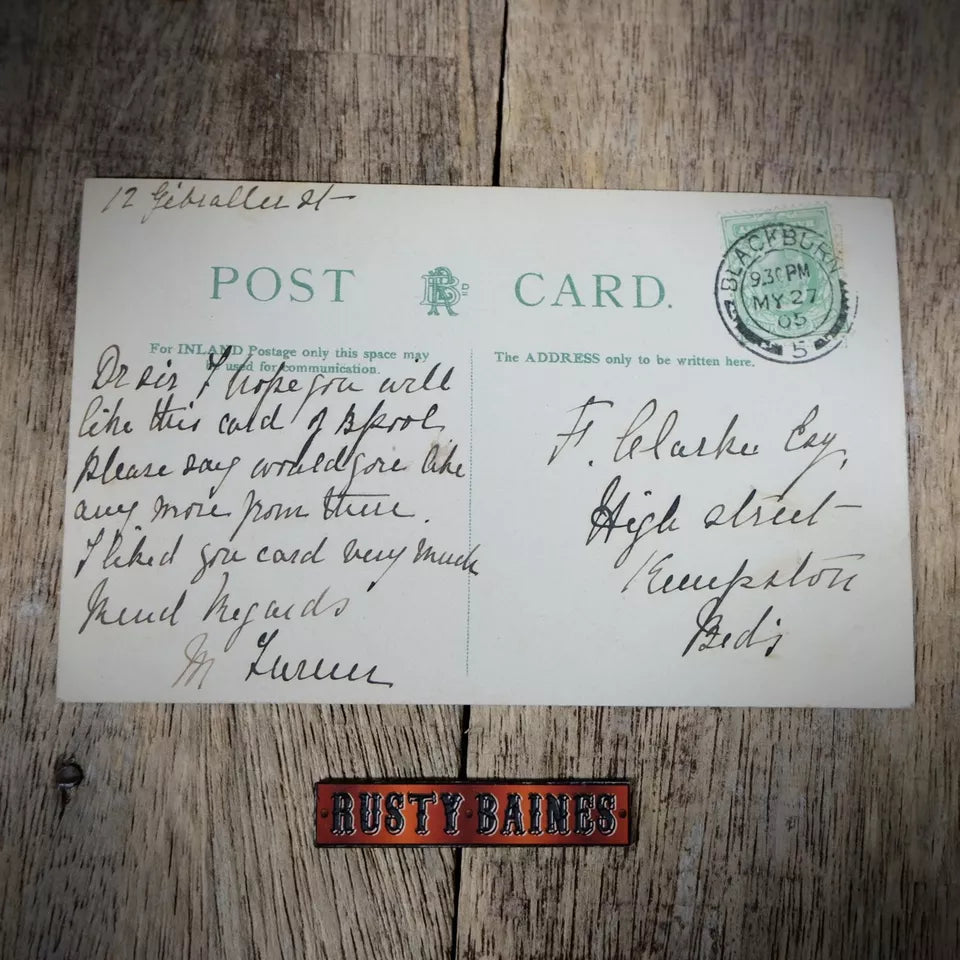 12 Gibralter St
POST CARD.
BLACKBURN
9.30PM
MY 27
05
5
For INLAND Postage only this space may
be used for communication.
The ADDRESS only to be written here.
Dr Sir I hope you will
like this card of Bpool
please say would you like
any more from there.
I liked you card very much
Kind Regards
M Turner
F. Clarke Esq,
High street
Kempston
Beds
RUSTY BAINES